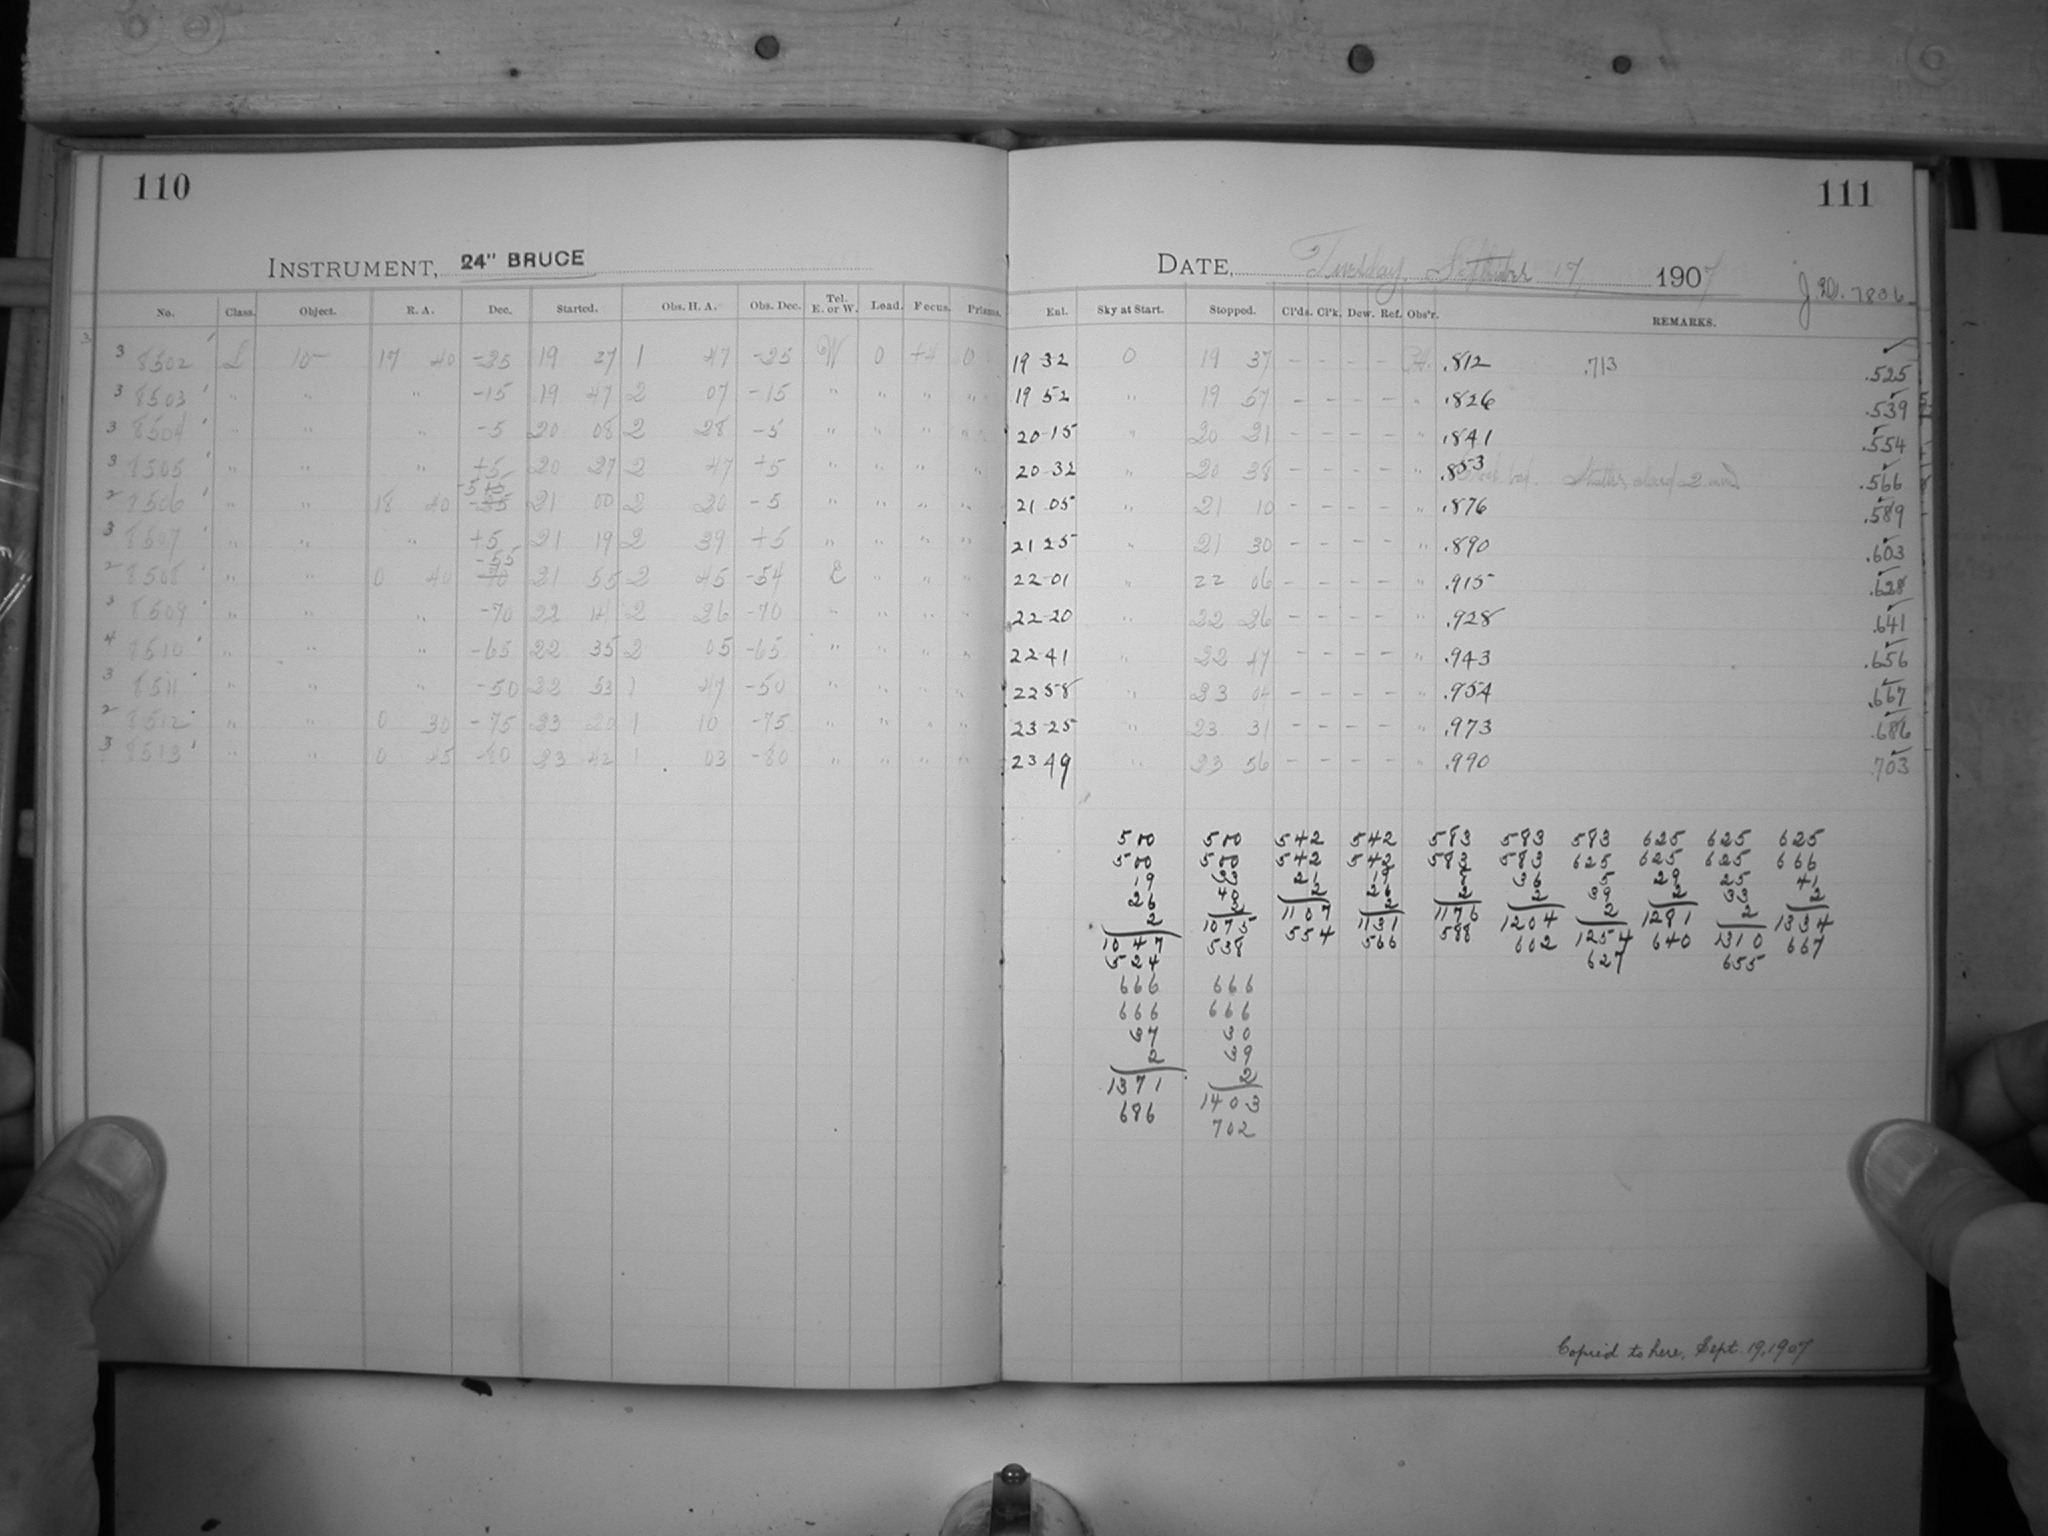 110
INSTRUMENT, 24" BRUCE
No. Class. Object. R. A. Dec. Started. Obs. H. A. Obs. Dec. Tel. E. or W. Load. Focus. Prisms.
3 8502 L 10 17 40 -25 19 27 1 47 -25 W 0 +4 0
3 8503 " " " -15 19 47 2 07 -15 " " " "
3 8504 " " " -5 20 08 2 28 -5 " " " "
3 8505 " " " +5 20 27 2 47 +5 " " " "
2 8506 " " 18 40 -5 21 00 2 20 -5 " " " "
3 8507 " " " +5 21 19 2 39 +5 " " " "
2 8508 " " 0 40 -55 21 55 2 45 -54 E " " "
3 8509 " " " -70 22 14 2 26 -70 " " " "
4 8510 " " " -65 22 35 2 05 -65 " " " "
3 8511 " " " -50 22 53 1 47 -50 " " " "
2 8512 " " 0 30 -75 23 20 1 10 -75 " " " "
3 8513 " " 0 45 -80 23 42 1 03 -80 " " " "
111
DATE, Tuesday, September 17, 1907
J.D. 7836
Enl. Sky at Start. Stopped. Cl'ds. Cl'k. Dew. Ref. Obs'r. REMARKS.
19 32 0 19 37 - - - - .812 .713 .525
19 52 " 19 57 - - - - " .826 .539
20 15 " 20 21 - - - - " .841 .554
20 32 " 20 38 - - - - " .853 Shutter closed 2 min .566
21 05 " 21 10 - - - - " .876 .589
21 25 " 21 30 - - - - " .890 .603
22 01 " 22 06 - - - - " .915 .628
22 20 " 22 26 - - - - " .928 .641
22 41 " 22 47 - - - - " .943 .656
22 58 " 23 04 - - - - " .954 .667
23 25 " 23 31 - - - - " .973 .686
23 49 " 23 56 - - - - " .990 .703
500 500 542 542 583 583 583 625 625 625
500 500 542 542 583 583 625 625 625 666
19 33 21 19 8 36 5 29 25 41
26 40 2 26 2 2 39 2 33 2
2 2 1107 2 1176 1204 2 1281 2 1334
1047 1075 554 1131 588 602 1254 640 1310 667
524 538 566 627 655
666 666
666 666
37 30
2 39
1371 2
686 1403
702
Copied to here, Sept. 19, 1907